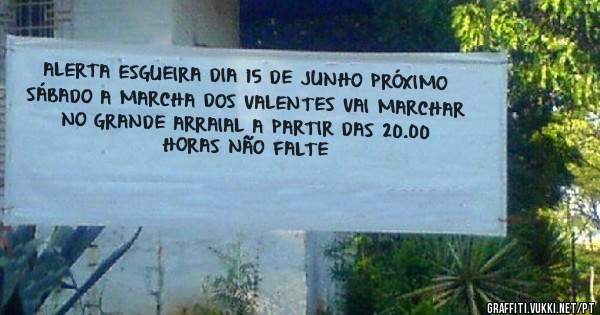 ALERTA ESGUEIRA DIA 15 DE JUNHO PRÓXIMO
SÁBADO A MARCHA DOS VALENTES VAI MARCHAR
NO GRANDE ARRAIAL A PARTIR DAS 20.00
HORAS NÃO FALTE
GRAFFITI.VUKKI.NET/PT